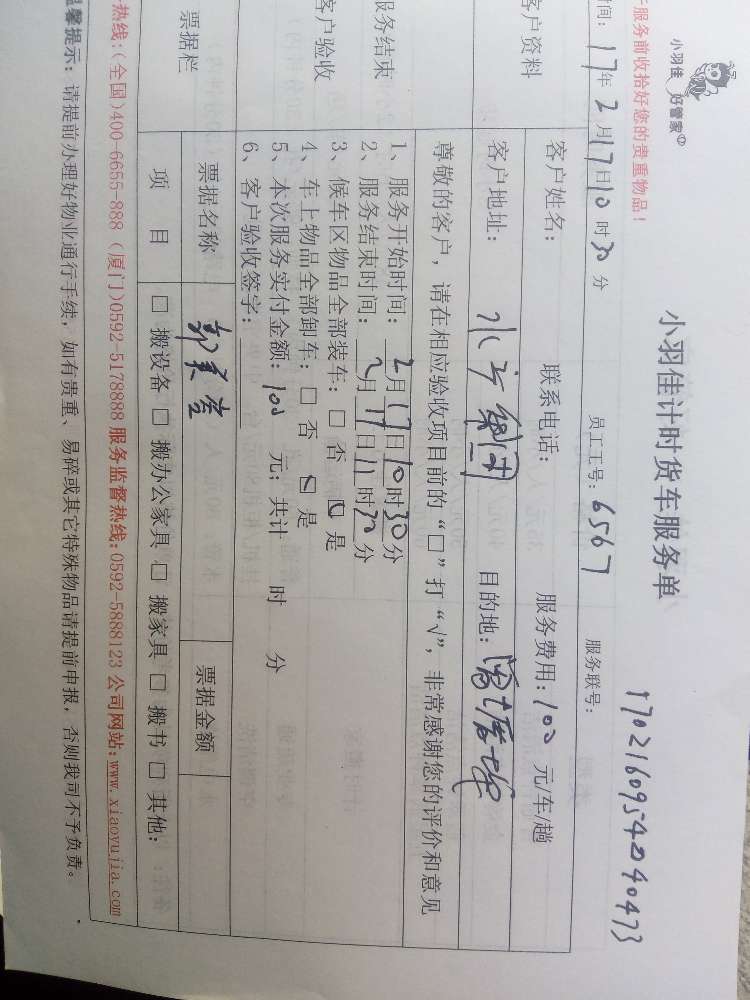 小羽佳 好管家
小羽佳计时货车服务单
服务前收拾好您的贵重物品!
1702160954040473
间: 17年2月17日10时30分 员工工号: 6567 服务联号:
客户资料 客户姓名: 联系电话: 服务费用: 100 元/车/趟
客户地址: 目的地:
尊敬的客户, 请在相应验收项目前的“□”打“√”, 非常感谢您的评价和意见
服务结束
客户验收
1、服务开始时间: 2月17日10时30分
2、服务结束时间: 2月17日11时30分
3、候车区物品全部装车: □ 否 □ 是
4、车上物品全部卸车: □ 否 □ 是
5、本次服务实付金额: 100 元; 共计 时 分
6、客户验收签字:
票据栏 票据名称 票据金额
项 目 □ 搬设备 □ 搬办公家具 □ 搬家具 □ 搬书 □ 其他:
热线: (全国)400-6655-888 (厦门)0592-5178888 服务监督热线: 0592-5888123 公司网站: www.xiaoyujia.com
温馨提示: 请提前办理好物业通行手续, 如有贵重、易碎或其它特殊物品请提前申报, 否则我司不予负责。